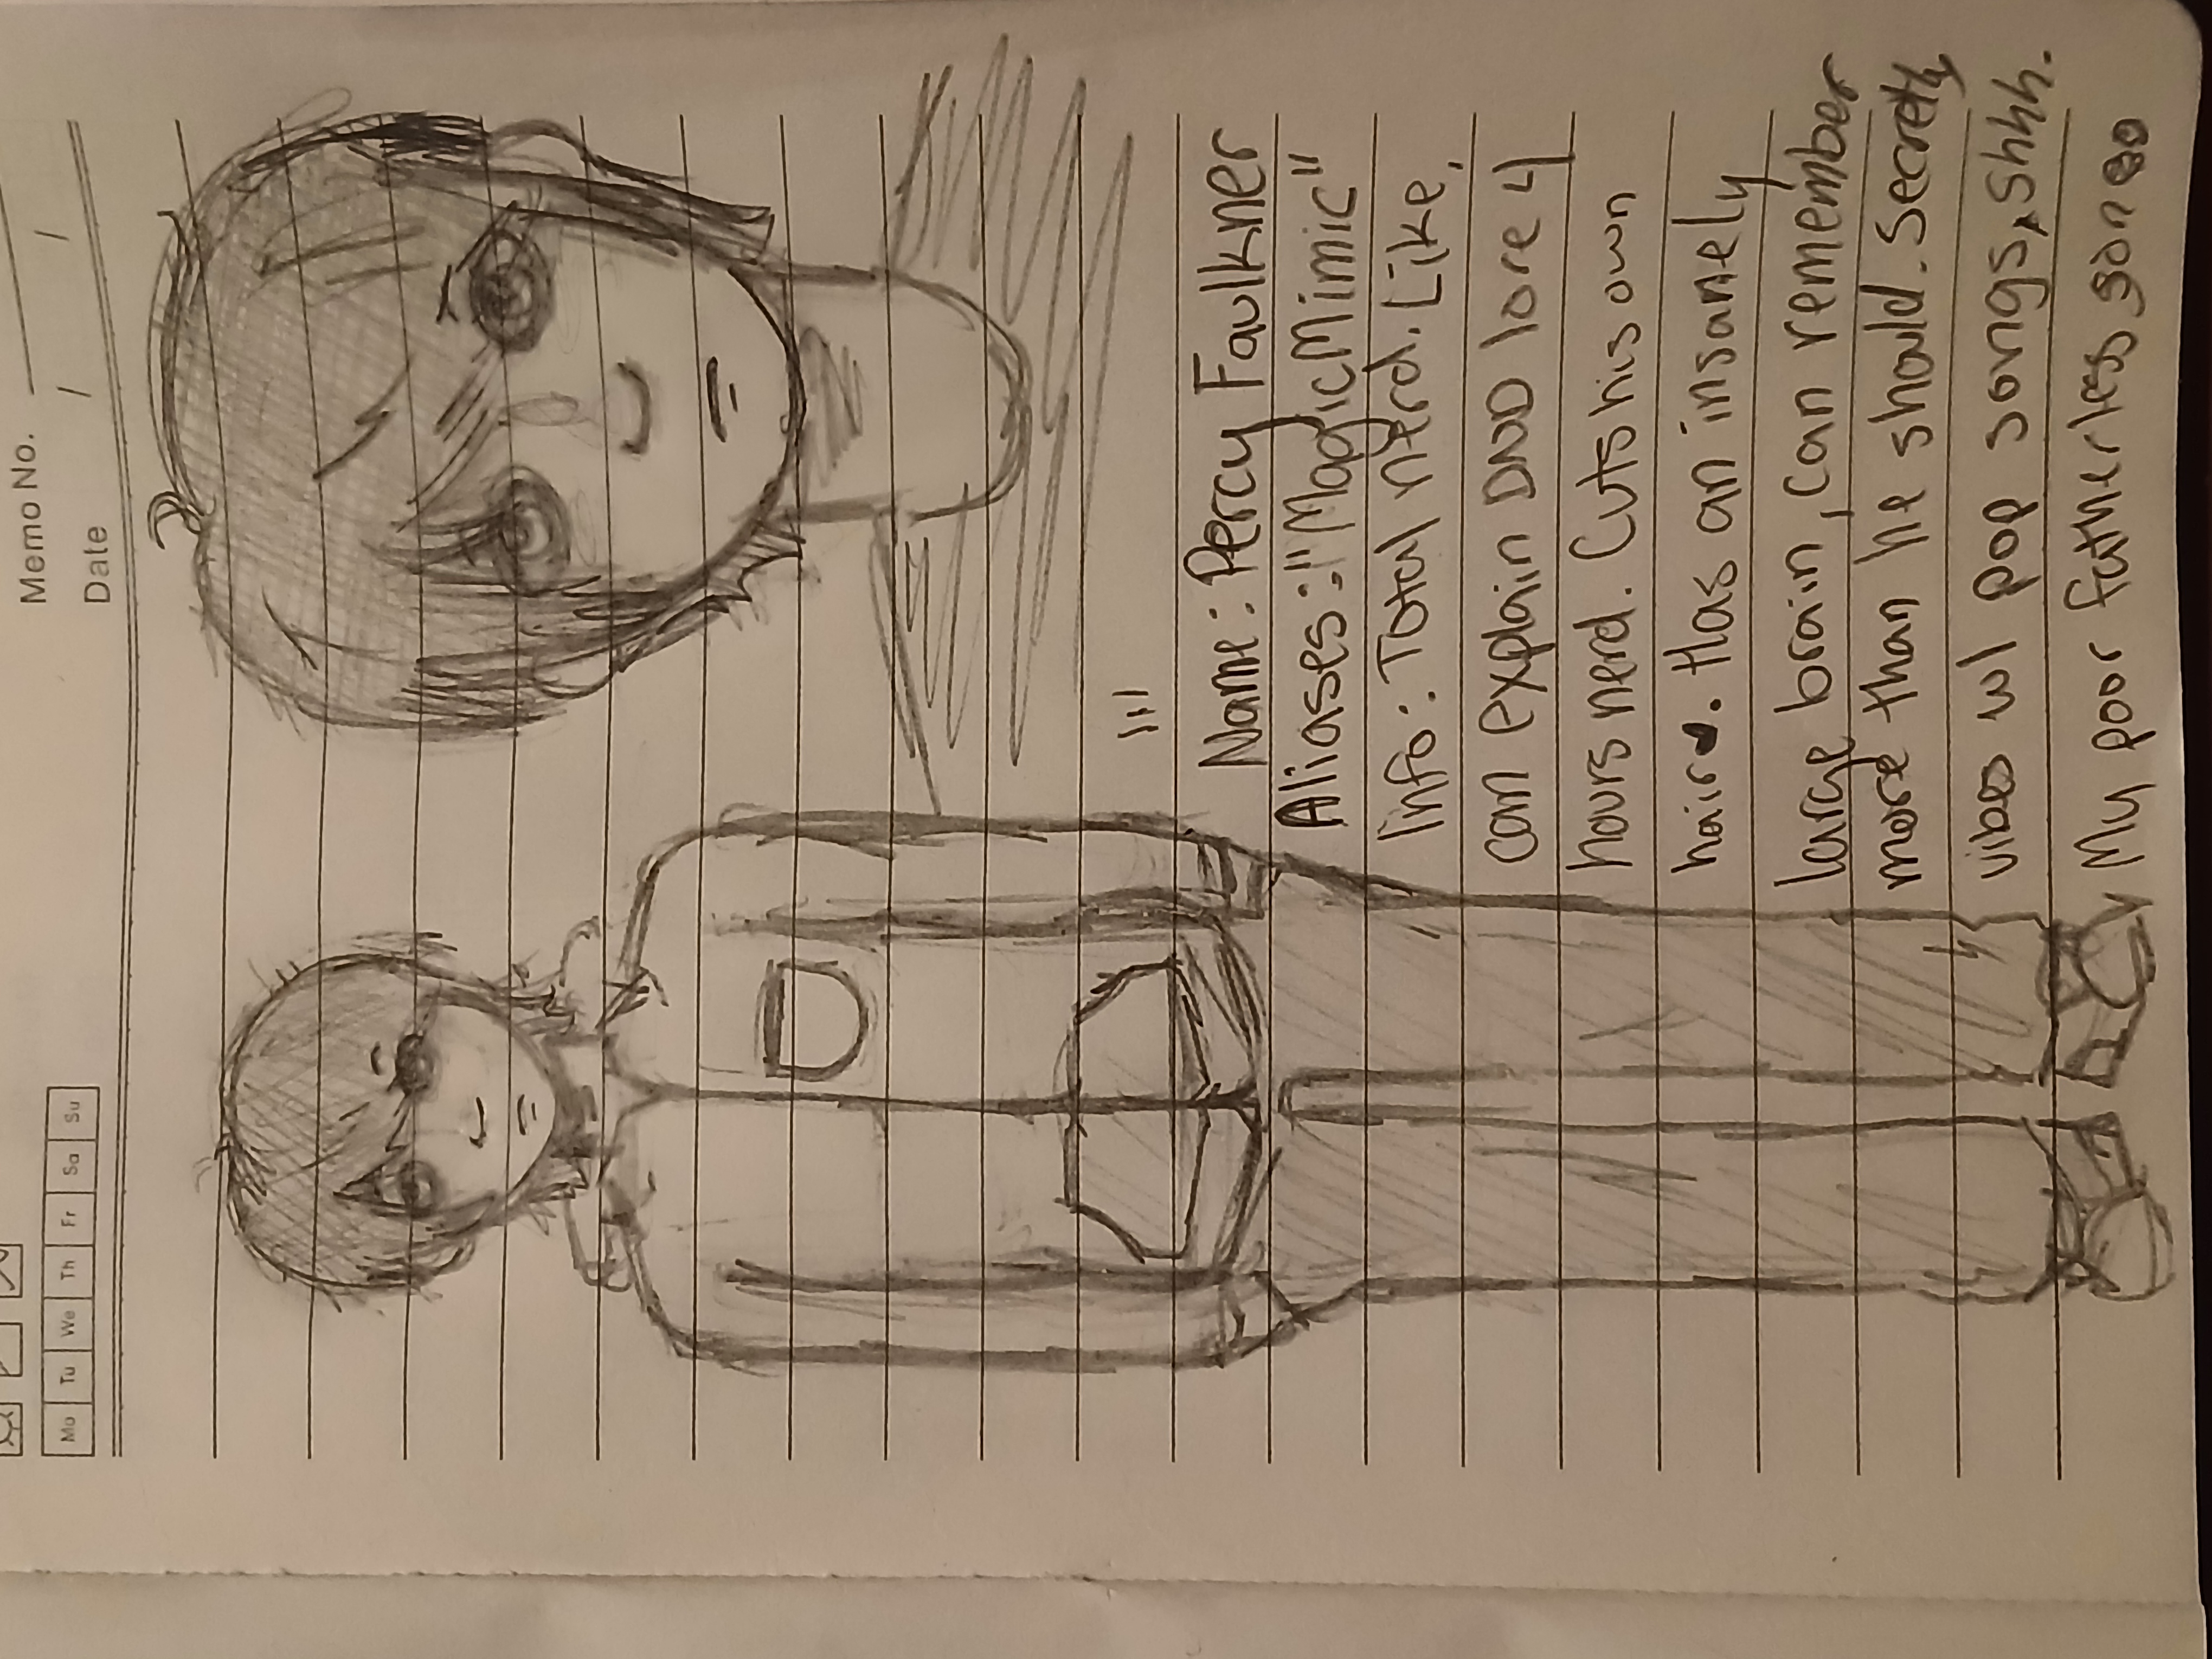 Memo No.
Mo Tu We Th Fr Sa Su
Date / /
D
Name: Percy Faulkner
Aliases: "MagicMimic"
Info: Total nerd. Like,
can explain DND lore 4
hours nerd. Cuts his own
hair. Has an insanely
large brain, can remember
more than he should. Secretly
vibes w/ pop songs, shhh.
My poor fatherless son